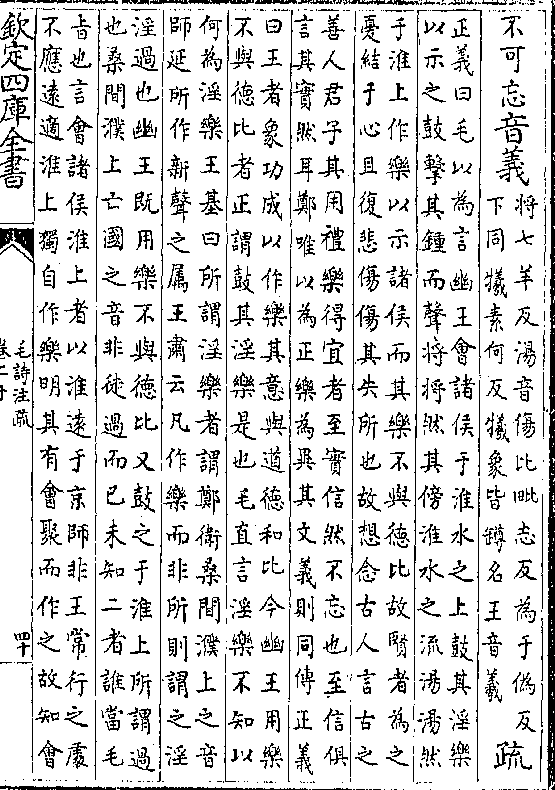 不可忘音義將七羊反湯音傷比毗志反為于偽反
下同犧素何反犧象皆罇名王音羲疏
正義曰毛以為言幽王會諸侯于淮水之上鼓其淫樂
以示之鼓擊其鍾而聲將將然其傍淮水之流湯湯然
于淮上作樂以示諸侯而其樂不與德比故賢者為之
憂結于心且復悲傷傷其失所也故想念古人言古之
善人君子其用禮樂得宜者至實信然不忘也至信俱
言其實然耳鄭唯以為正樂為異其文義則同傳正義
曰王者象功成以作樂其意與道德和比今幽王用樂
不與德比者正謂鼓其淫樂是也毛直言淫樂不知以
何為淫樂王基曰所謂淫樂者謂鄭衛桑間濮上之音
師延所作新聲之屬王肅云凡作樂而非所則謂之淫
淫過也幽王既用樂不與德比又鼓之于淮上所謂過
也桑間濮上亡國之音非徒過而已未知二者誰當毛
㫖也言會諸侯淮上者以淮遠于京師非王常行之處
不應遠適淮上獨自作樂明其有會聚而作之故知會
欽定四庫全書
毛詩注疏
卷二十
四十